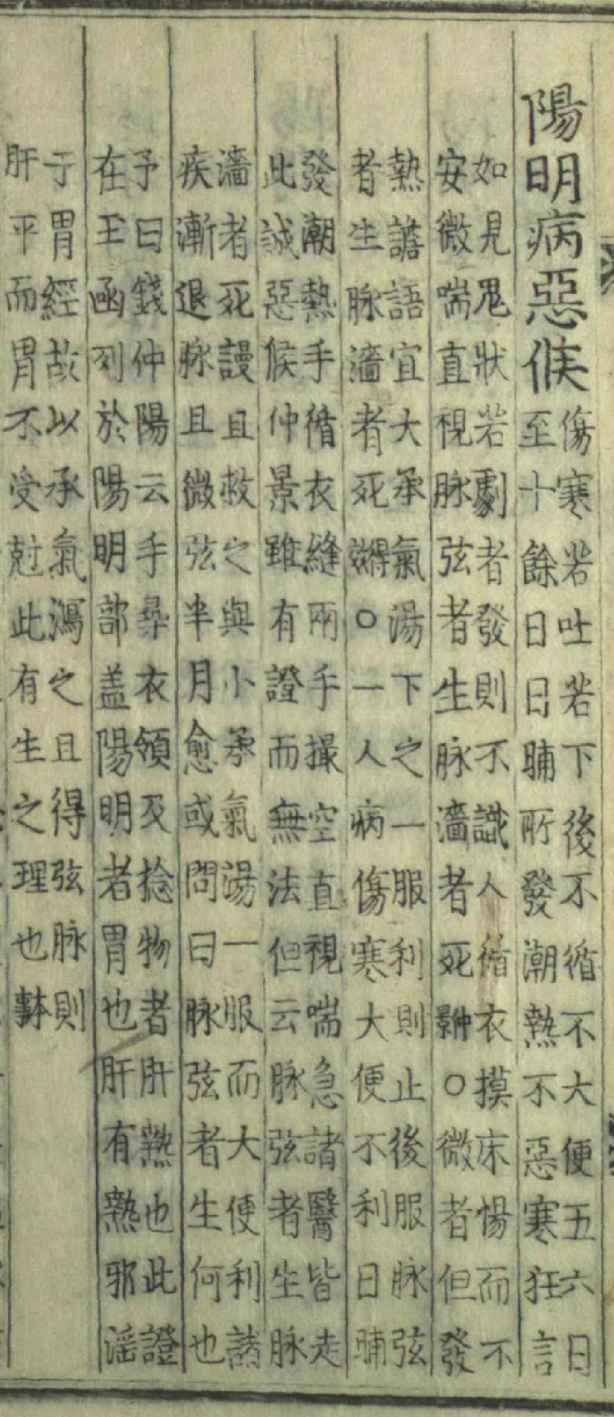 陽明病惡候
傷寒若吐若下後不循不大便五六日
至十餘日日晡所發潮熱不惡寒狂言
如見鬼狀若劇者發則不識人循衣摸床惕而不
安微喘直視脉弦者生脉濇者死 ○微者但發
熱譫語宜大承氣湯下之一服利則止後服脉弦
者生脉濇者死 ○一人病傷寒大便不利日晡
發潮熱手循衣縫兩手撮空直視喘急諸醫皆走
此誠惡候仲景雖有證而無法但云脉弦者生脉
濇者死謾且救之與小承氣湯一服而大便利諸
疾漸退脉且微弦半月愈或問曰脉弦者生何也
予曰錢仲陽云手尋衣領及捻物者肝熱也此證
在玉函列於陽明部盖陽明者胃也肝有熱邪滛
于胃經故以承氣瀉之且得弦脉則
肝平而胃不受尅此有生之理也